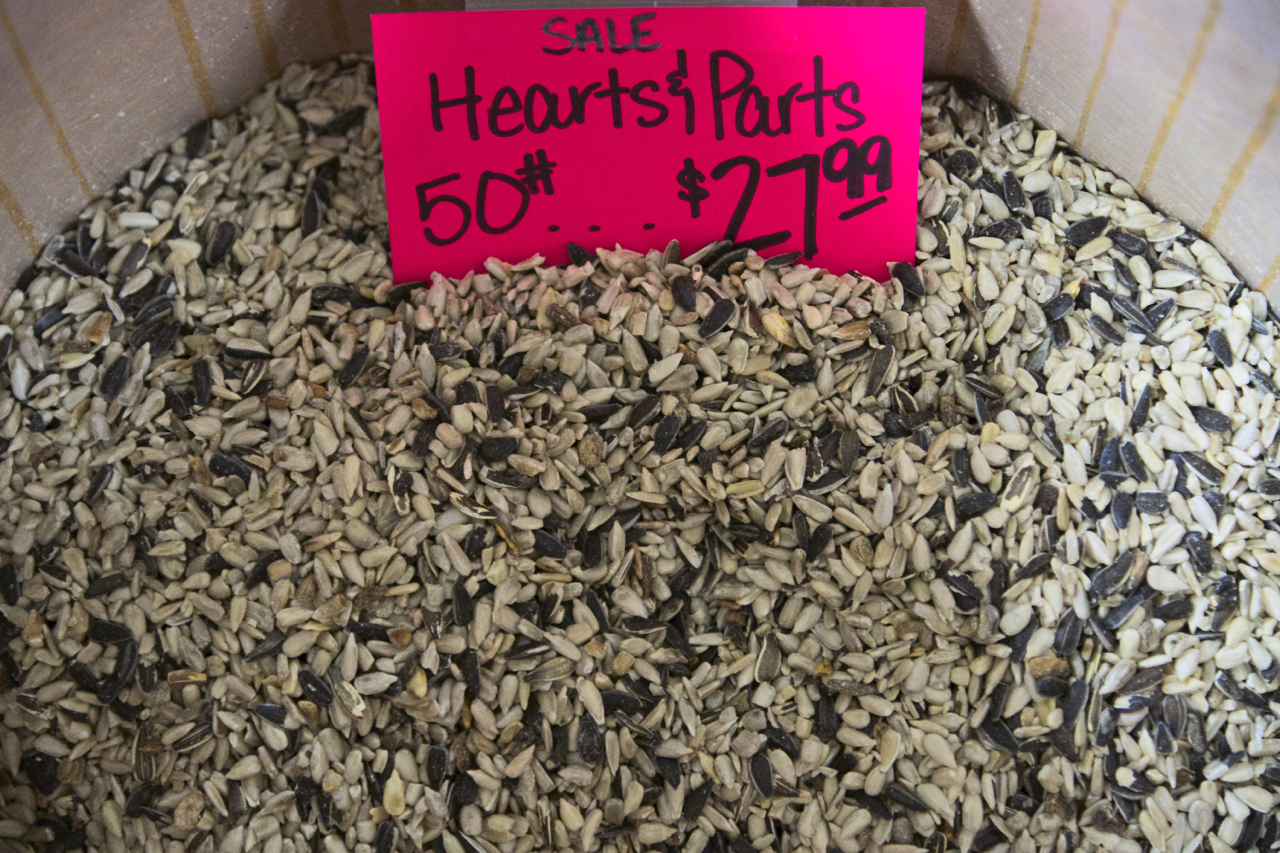 SALE
Hearts & Parts
50# . . . $27.99